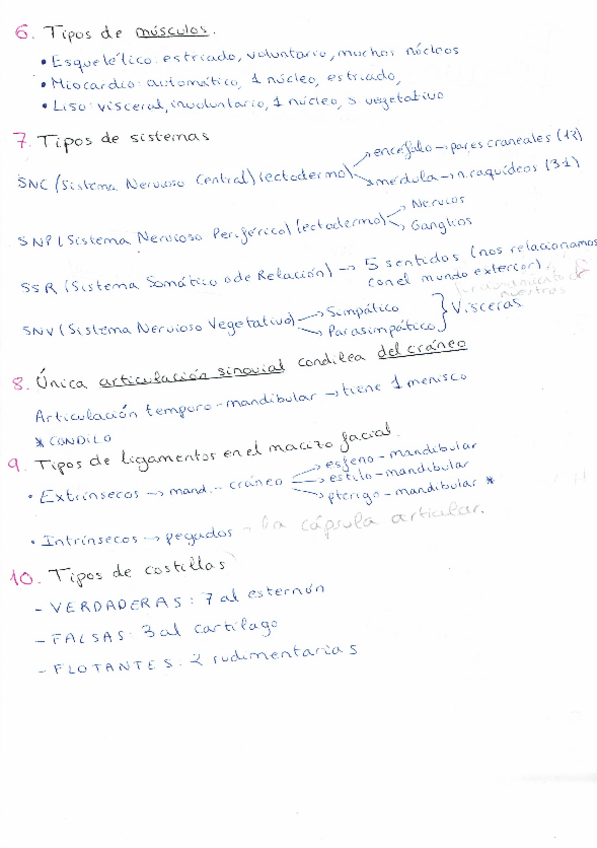 6. Tipos de músculos.
• Esquelético: estriado, voluntario, muchos núcleos
• Miocardio: automático, 1 núcleo, estriado,
• Liso: visceral, involuntario, 1 núcleo, s. vegetativo
7. Tipos de sistemas
SNC (Sistema Nervioso Central) (ectodermo) → encéfalo → pares craneales (12)
→ médula → n. raquídeos (31)
SNP (Sistema Nervioso Periférico) (ectodermo) → Nervios
→ Ganglios
SSR (Sistema Somático o de Relación) → 5 sentidos (nos relacionamos
con el mundo exterior).
SNV (Sistema Nervioso Vegetativo) → Simpático
→ Parasimpático } Vísceras
8. Única articulación sinovial condilea del cráneo
Articulación temporo-mandibular → tiene 1 menisco
* CÓNDILO
9. Tipos de ligamentos en el macizo facial.
• Extrínsecos → mand. - cráneo → esfeno-mandibular
→ estilo-mandibular
→ pterigo-mandibular *
• Intrínsecos → pegados a la cápsula articular.
10. Tipos de costillas
- VERDADERAS: 7 al esternón
- FALSAS: 3 al cartílago
- FLOTANTES: 2 rudimentarias